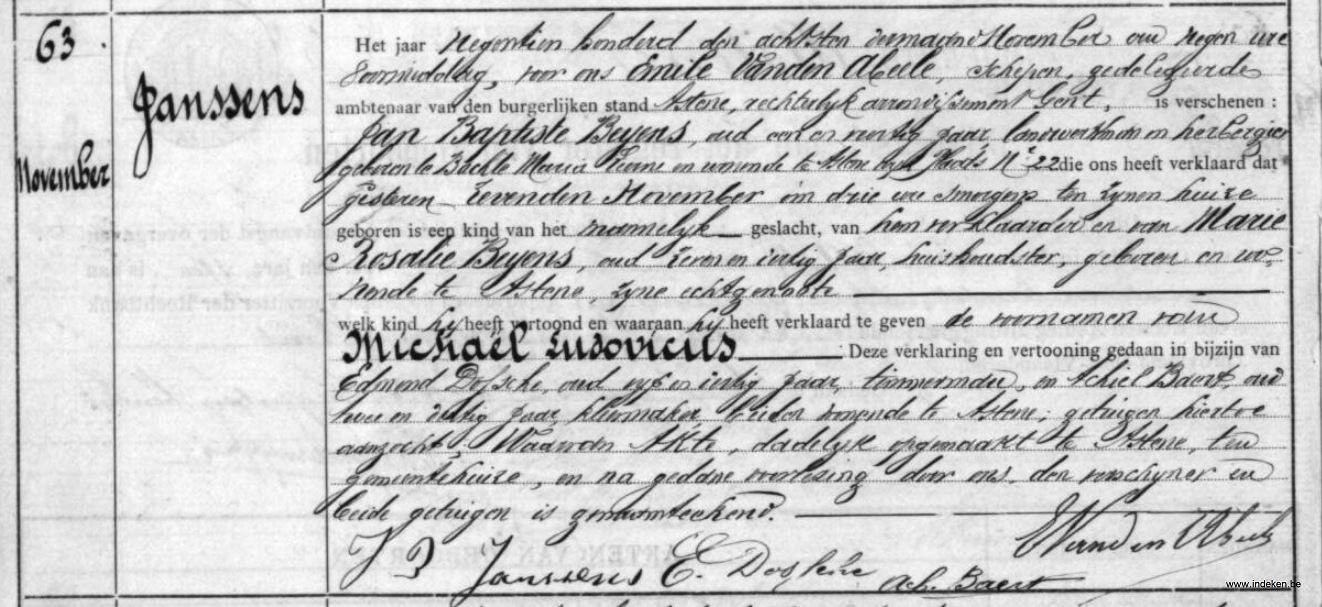 63.
Janssens
November
Het jaar Negentien honderd den achtsten der maand November om negen ure
voormiddag, voor ons Emile Vanden Abeele, schepen, gedelegeerde
ambtenaar van den burgerlijken stand Astene, rechterlyk arrondissement Gent, is verschenen :
Jan Baptiste Beyens, oud een en veertig jaar, landwerkman en herbergier
geboren te Bachte Maria Leerne en wonende te Astene wyk Plaats Nr 22 die ons heeft verklaard dat
gisteren zevenden November om drie ure smorgens ten zynen huize
geboren is een kind van het mannelyk geslacht, van hem verklaarder en van Marie
Rosalie Beyens, oud zeven en dertig jaar, huishoudster, geboren en wo-
nende te Astene, zyne echtgenoote
welk kind hy heeft vertoond en waaraan hy heeft verklaard te geven de voornamen van
Michaël Ludovicus Deze verklaring en vertooning gedaan in bijzijn van
Edmond Dossche, oud vyf en dertig jaar, timmerman, en Achiel Baert, oud
twee en dertig jaar, kleermaker, beiden wonende te Astene, getuigen hiertoe
aanzocht, Waarvan Akte, dadelyk opgemaakt te Astene, ten
gemeentehuize, en na gedane voorlezing door ons, den verschyner en
beide getuigen is genaamteekend.
E Vanden Abeele
J B Janssens E. Dossche Ach. Baert
www.indeken.be